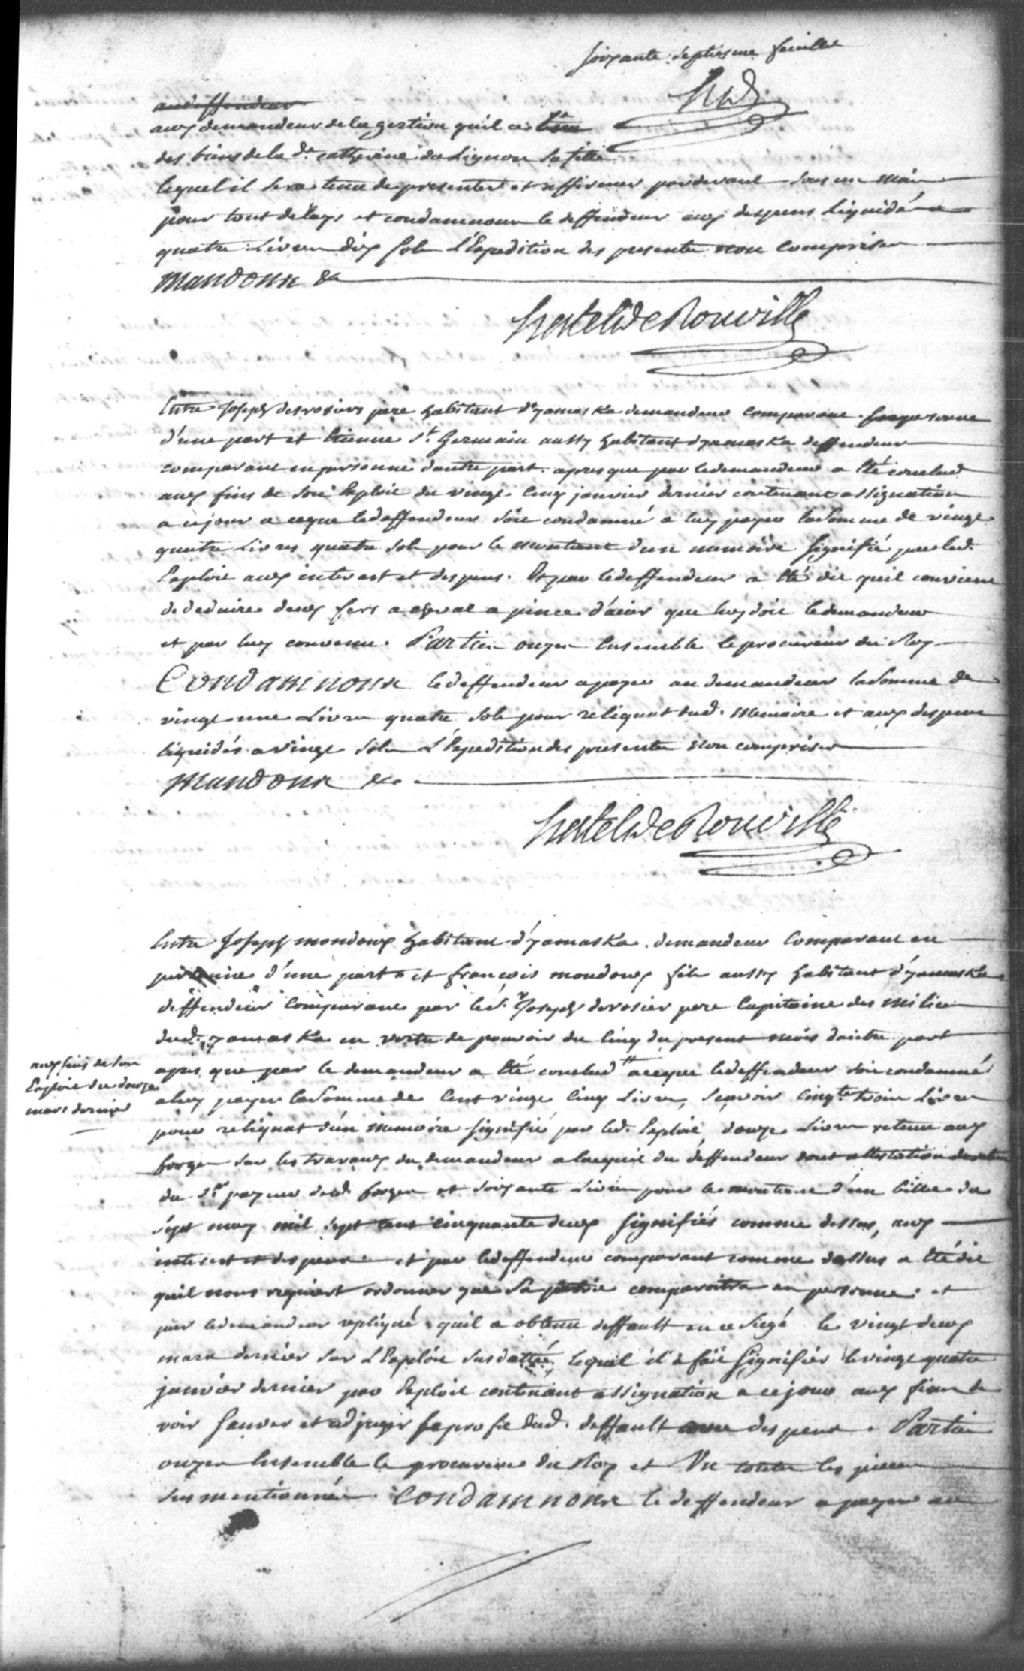 soixante septiesme feuille
aux demandeur de la gestion quil a
des biens de la de. catherine du Lignon sa fille
lequel il sera tenu de presenter et affirmer pardevant Nous un mois
pour tout delays et condamnons le deffendeur aux despens liquidés a
quatre Livres dix sols L'Expedition des presentes non comprises
Mandons &
hertel De Rouville
Entre Joseph desrosiers pere habitant d'yamaska demandeur comparant
d'une part et Etienne st. Germain aussy habitant d'yamaska deffendeur
comparant en personne dautre part. apres que par le demandeur a Eté conclud
aux fins de son Exploit du vingt cinq janvier dernier contenant assignation
a ce jour a ceque le deffendeur soit condamné a luy payer la Somme de vingt
quatre Livres quatre sols pour le montant d'un memoire signifié par led.
Exploit aux interest et despens. Et par le deffendeur a Eté dit quil convient
de deduire deux fers a cheval a pince d'acier que luy doit le demandeur
et par luy convenu. Parties ouyes Ensemble le procureur du Roy
Condamnons le deffendeur a payer au demandeur la Somme de
vingt une Livres quatre sols pour reliquat dud. memoire et aux despens
liquidés a vingt sols L'Expedition des presentes Non comprises
Mandons &c.
hertel De Rouville
Entre Joseph mondoux habitant d'yamaska demandeur comparant en
personne d'une part et françois mondoux fils aussy habitant d'yamaska
deffendeur comparant par le sr. Joseph derosier pere Capitaine des milice
dud. yamaska en vertu de pouvoir du cinq du present mois dautre part
apres que par le demandeur a Eté conclud a ceque le deffendeur soit condamné
aux fins de son
Exploit du douze
mars dernier
a luy payer la Somme de Cent vingt cinq Livres, scavoir cinqte. trois Livres
pour reliquat d'un memoire signifié par led. Exploit, douze Livres retenu aux
forges sur les travaux du demandeur a lacquit du deffendeur dont attestation
du sr. payeur desd. forges et soixante Livres pour le montant d'un billet du
sept may mil sept cent cinquante deux signifiés comme dessus, aux
interest et despens et par le deffendeur comparant comme dessus a Eté dit
quil nous requiert ordonner que sa partie comparoitra en personne; et
par le demandeur repliqué quil a obtenu deffault en ce siege le vingt deux
mars dernier sur L'Exploit susdatté, lequel il a fait signifier le vingt quatre
janvier dernier par Exploit contenant assignation a ce jour aux fins de
voir sauver et adjuger le profit dud. deffault avec despens. Parties
ouyes Ensemble le procureur du Roy et Vu toutes les pieces
sus mentionnées Condamnons le deffendeur a payer au